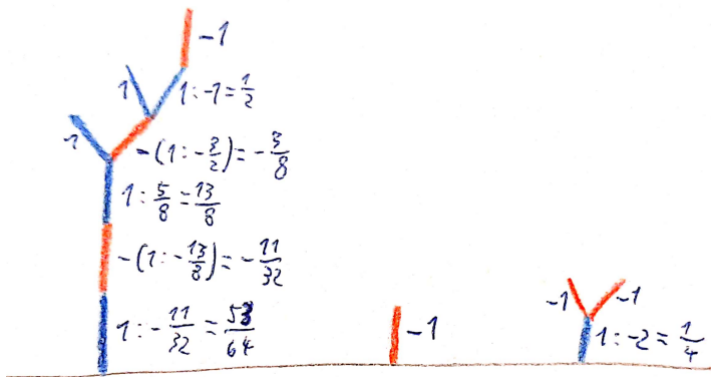 -1
1
1:-1=1/2
1
-(1:-3/2)=-3/8
1:5/8=13/8
-(1:-13/8)=-11/32
1:-11/32=53/64
-1
-1
-1
1:-2=1/4